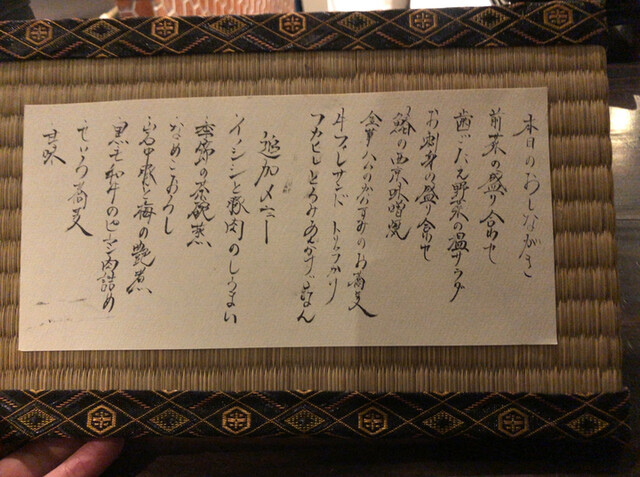 本日のおしながき
前菜の盛り合せ
歯ごたえ野菜の温サラダ
お刺身の盛り合せ
鰆の西京味噌焼
金華ハムのからすみのお蕎麦
牛フィレサンド トリュフかけ
フカヒレとろみあんかけごはん
追加メニュー
イノシシと豚肉のしゅうまい
季節の茶碗蒸
なめこおろし
の艶煮
黒毛和牛のピーマン肉詰め
せいろ蕎麦
甘味